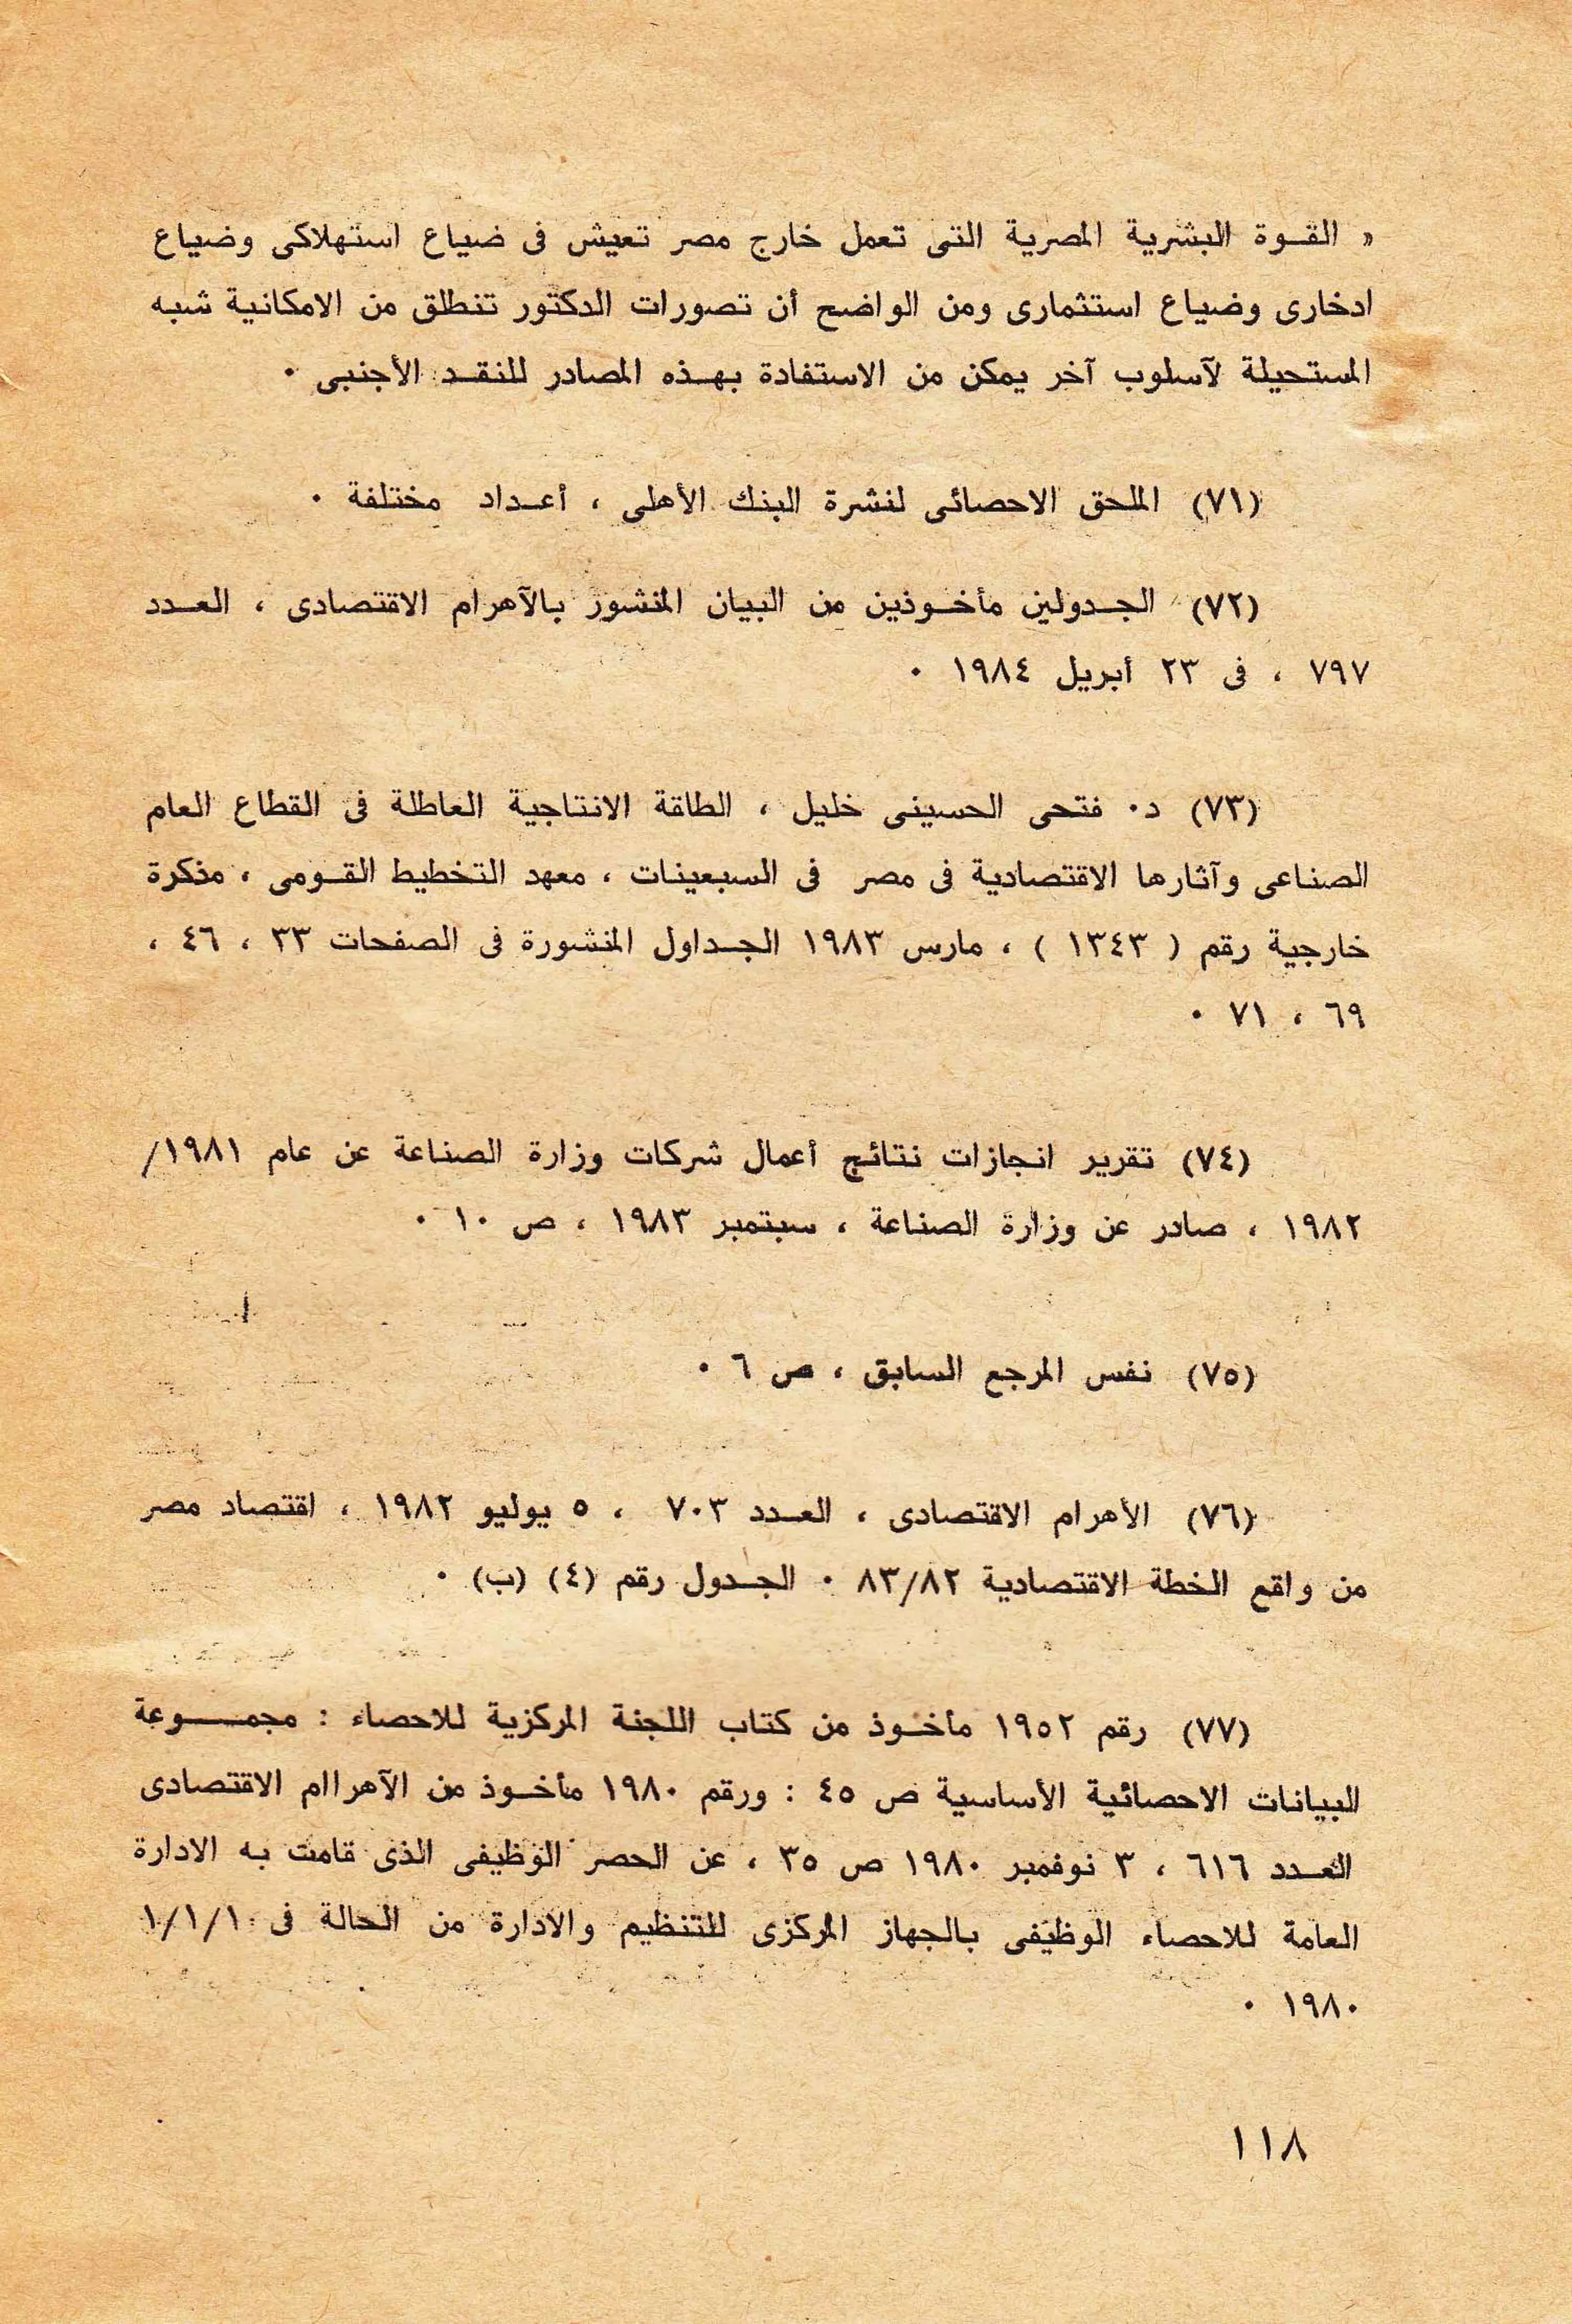 « القوة البشرية المصرية التى تعمل خارج مصر تعيش فى ضياع استهلاكى وضياع
ادخارى وضياع استثمارى ومن الواضح أن تصورات الدكتور تنطلق من الامكانية شبه
المستحيلة لآسلوب آخر يمكن من الاستفادة بهذه المصادر للنقد الأجنبى ٠
(٧١) الملحق الاحصائى لنشرة البنك الأهلى ، أعداد مختلفة ٠
(٧٢) الجدولين مأخوذين من البيان المنشور بالآهرام الاقتصادى ، العدد
٧٩٧ ، فى ٢٣ أبريل ١٩٨٤ ٠
(٧٣) د٠ فتحى الحسينى خليل ، الطاقة الانتاجية العاطلة فى القطاع العام
الصناعى وآثارها الاقتصادية فى مصر فى السبعينات ، معهد التخطيط القومى ، مذكرة
خارجية رقم ( ١٣٤٣ ) ، مارس ١٩٨٣ الجداول المنشورة فى الصفحات ٣٣ ، ٤٦ ،
٦٩ ، ٧١ ٠
(٧٤) تقرير انجازات نتائج أعمال شركات وزارة الصناعة عن عام ١٩٨١/
١٩٨٢ ، صادر عن وزارة الصناعة ، سبتمبر ١٩٨٣ ، ص ١٠ ٠
(٧٥) نفس المرجع السابق ، ص ٦ ٠
(٧٦) الأهرام الاقتصادى ، العدد ٧٠٣ ، ٥ يوليو ١٩٨٢ ، اقتصاد مصر
من واقع الخطة الاقتصادية ٨٣/٨٢ ٠ الجدول رقم (٤) (ب) ٠
(٧٧) رقم ١٩٥٢ مأخوذ من كتاب اللجنة المركزية للاحصاء : مجموعة
البيانات الاحصائية الأساسية ص ٤٥ : ورقم ١٩٨٠ مأخوذ من الآهراام الاقتصادى
العدد ٦١٦ ، ٣ نوفمبر ١٩٨٠ ص ٣٥ ، عن الحصر الوظيفى الذى قامت به الادارة
العامة للاحصاء الوظيفى بالجهاز المركزى للتنظيم والادارة من الحالة فى ١/١/١
١٩٨٠ ٠
١١٨